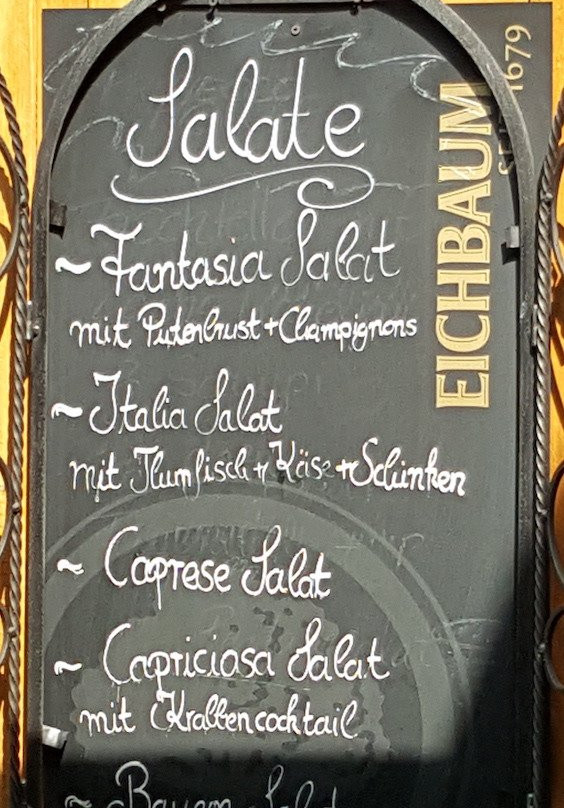 Salate
~ Fantasia Salat
mit Putenbrust + Champignons
~ Italia Salat
mit Thunfisch + Käse + Schinken
~ Caprese Salat
~ Capriciosa Salat
mit Krabbencocktail
~ Salat
EICHBAUM
1679